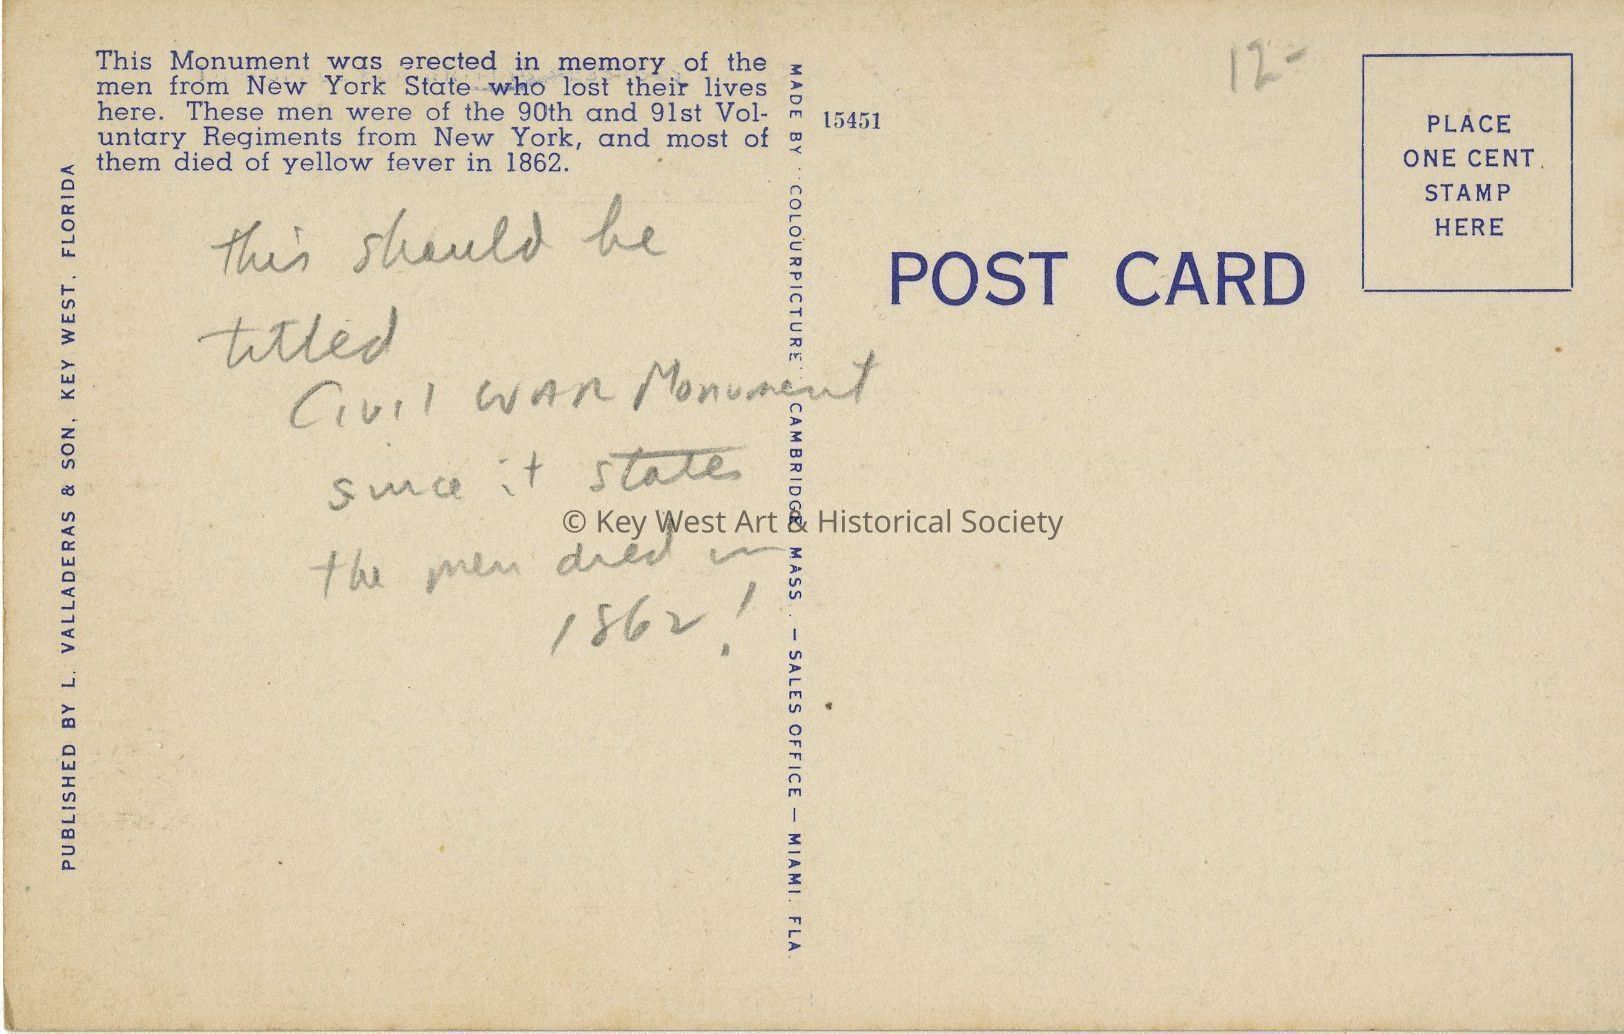 This Monument was erected in memory of the
men from New York State who lost their lives
here. These men were of the 90th and 91st Vol-
untary Regiments from New York, and most of
them died of yellow fever in 1862.
this should be
titled
Civil WAR Monument
since it states
the men died in
1862!
PUBLISHED BY L. VALLADERAS & SON, KEY WEST, FLORIDA
MADE BY "COLOURPICTURE" CAMBRIDGE, MASS. — SALES OFFICE — MIAMI, FLA.
15451
12-
POST CARD
PLACE
ONE CENT
STAMP
HERE
© Key West Art & Historical Society